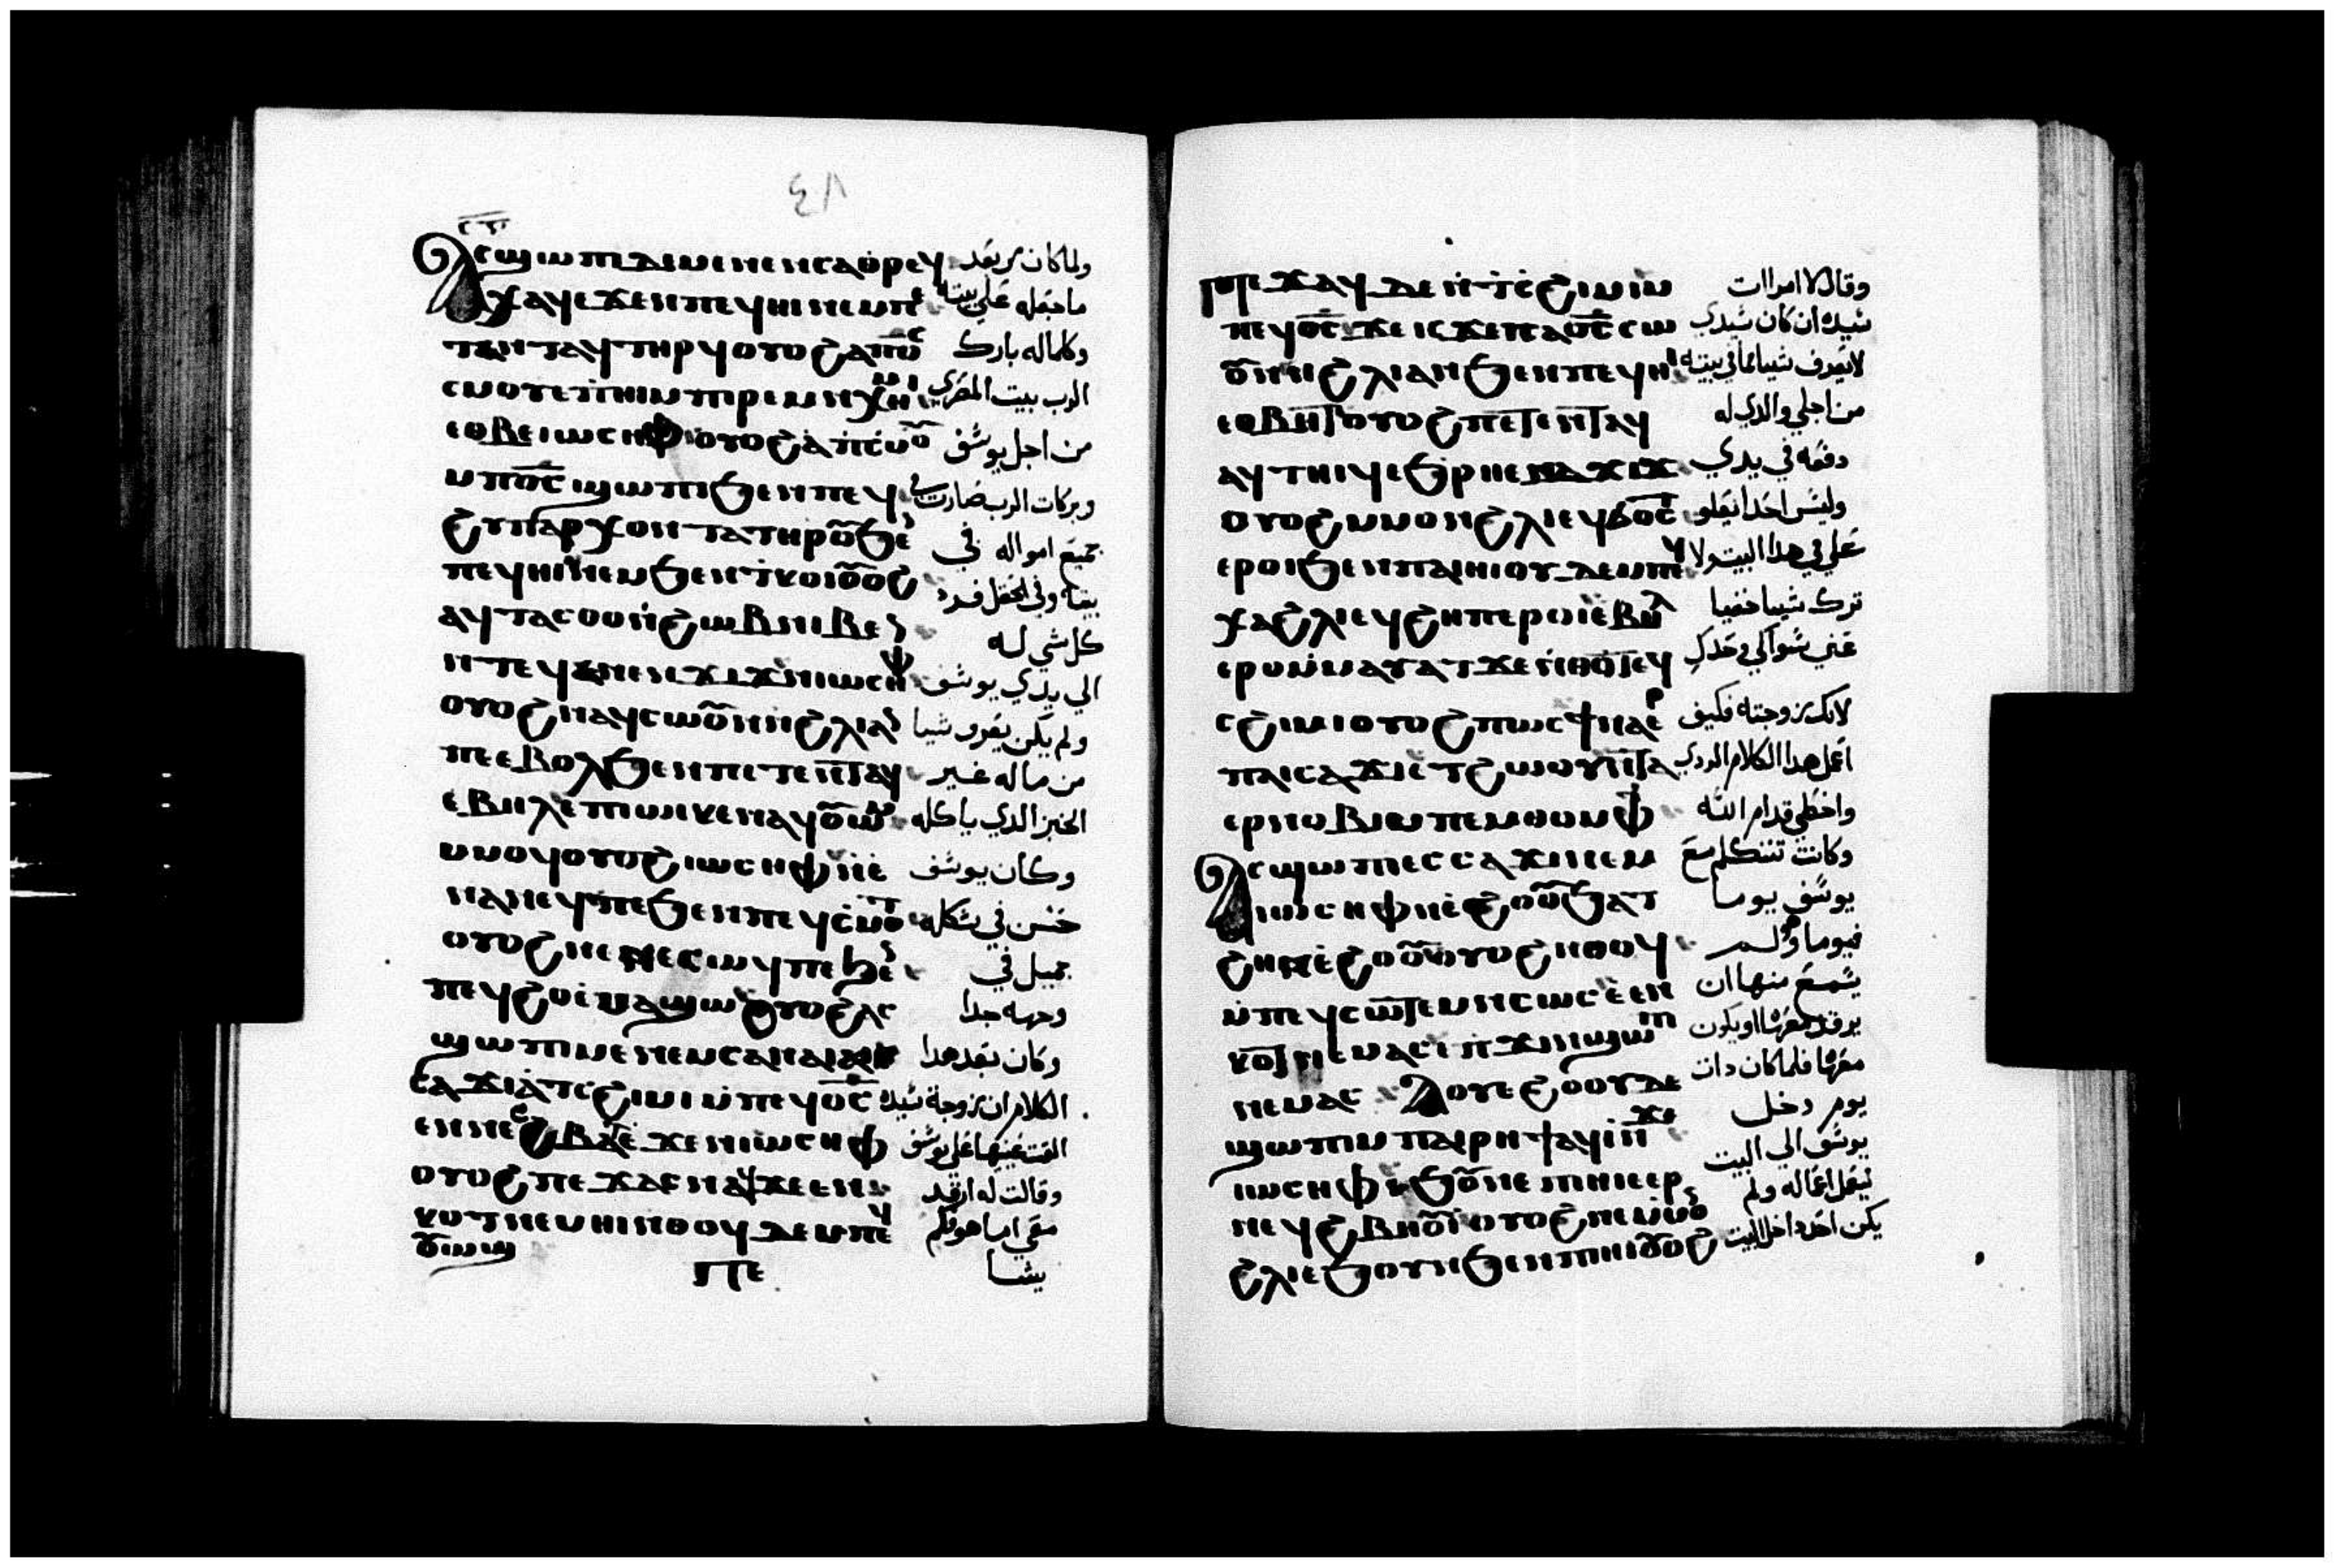 ٤٨
ⲁⲥϣⲱⲡⲓ ⲇⲉ ⲙⲉⲛⲉⲛⲥⲁ ⲑⲣⲉϥ ولما كان من بعد
ⲭⲁϥ ⲉϫⲉⲛ ⲡⲉϥⲏⲓ ⲛⲉⲙ ما جعله على بيته
ⲧⲁϥ ⲧⲏⲣϥ ⲟⲩⲟϩ ⲁ ⲡϭⲥ وكلما له بارك
ⲥⲙⲟⲩ ⲉⲡⲏⲓ ⲙⲡⲓⲣⲉⲙⲛⲭⲏⲙⲓ الرب بيت المصري
ⲉⲑⲃⲉ ⲓⲱⲥⲏⲫ ⲟⲩⲟϩ ⲁ ⲡⲥⲙⲟⲩ من اجل يوسف
ⲙⲡϭⲥ ϣⲱⲡⲓ ϧⲉⲛ ⲡⲉϥ وبركات الرب صارت
ϩⲩⲡⲁⲣⲭⲟⲛⲧⲁ ⲧⲏⲣⲟⲩ ϧⲉⲛ جميع امواله في
ⲡⲉϥⲏⲓ ⲛⲉⲙ ϧⲉⲛ ⲧⲕⲟⲓ ⲟⲩⲟϩ بيته وفي الحقل فرد
ⲁϥⲧⲁⲥⲑⲟ ⲛϩⲱⲃ ⲛⲓⲃⲉⲛ كل شي له
ϫⲓϫ ⲛⲓⲱⲥⲏⲫ الي يدي يوسف
ⲟⲩⲟϩ ⲛⲁϥⲥⲱⲟⲩⲛ ⲛϩⲗⲓ ⲁⲛ ولم يكن يعرف شيا
ⲡⲉ ⲉⲃⲟⲗ ϧⲉⲛ ⲡⲉⲧⲉⲛⲧⲁϥ من ماله غير
ⲉⲃⲏⲗ ⲉⲡⲓⲱⲓⲕ ⲉⲛⲁϥⲟⲩⲱⲙ الخبز الدي ياكله
ⲙⲙⲟϥ ⲟⲩⲟϩ ⲓⲱⲥⲏⲫ ⲛⲉ وكان يوسف
ⲛⲁⲛⲉϥ ⲡⲉ ϧⲉⲛ ⲡⲉϥⲥⲙⲟⲧ حسن في شكله
ⲟⲩⲟϩ ⲛⲉ ⲛⲉⲥⲱϥ ⲡⲉ ϧⲉⲛ جميل في
ⲡⲉϥϩⲟ ⲉⲙⲁϣⲱ ⲟⲩⲟϩ ⲁⲥ وجهه جدا
ϣⲱⲡⲓ ⲙⲉⲛⲉⲛⲥⲁ ⲛⲁⲓ وكان بعد هدا
ⲥⲁϫⲓ ⲁ ⲧⲥϩⲓⲙⲓ ⲙⲡⲉϥϭⲥ الكلام ان زوجة سيده
ⲉⲛ ⲛⲉⲥⲃⲁⲗ ⲉϫⲉⲛ ⲓⲱⲥⲏⲫ القت عينيها علي يوسف
ⲟⲩⲟϩ ⲡⲉϫⲁⲥ ⲛⲁϥ ϫⲉ ⲉⲛ وقالت له ارقد
ⲕⲟⲧ ⲛⲉⲙⲏⲓ ⲛⲑⲟϥ ⲇⲉ ⲙⲡⲉϥ معي اما هو فلم
ⲟⲩⲱϣ يشا
ⲡⲉϫⲁϥ ⲇⲉ ⲛⲧⲥϩⲓⲙⲓ ⲙ وقال لامراات
ⲡⲉϥϭⲥ ϫⲉ ⲓⲥϫⲉ ⲡⲁϭⲥ ⲥⲱ سيده ان كان سيدي
ⲟⲩⲛ ⲛϩⲗⲓ ⲁⲛ ϧⲉⲛ ⲡⲉϥⲏⲓ لا يعرف شيا مما في بيته
ⲉⲑⲃⲏⲧ ⲟⲩⲟϩ ⲡⲉⲧⲉⲛⲧⲁϥ من اجلي والدي له
ⲁϥⲧⲏⲓϥ ⲉϧⲣⲏⲓ ⲉⲛⲁϫⲓϫ دفعه في يدي
ⲟⲩⲟϩ ⲙⲙⲟⲛ ϩⲗⲓ ⲉϥϭⲟⲥⲓ وليس احدا يعلو
ⲉⲣⲟⲓ ϧⲉⲛ ⲡⲁⲓⲏⲓ ⲟⲩⲇⲉ ⲙⲡⲉϥ علي في هدا البيت ولا
ⲭⲁ ϩⲗⲓ ⲉϥϩⲏⲡ ⲉⲣⲟⲓ ⲉⲃⲏⲗ ترك شيا خفيا
ⲉⲣⲟ ⲙⲙⲁⲩⲁⲧ ϫⲉ ⲛⲑⲟ ⲧⲉϥ عني سواكي وحدك
ⲥϩⲓⲙⲓ ⲟⲩⲟϩ ⲡⲱⲥ ϯⲛⲁⲉⲣ لانك زوجته فكيف
ⲡⲁⲓⲥⲁϫⲓ ⲉⲧϩⲱⲟⲩ ⲛⲧⲁ اعمل هدا الكلام الردي
ⲉⲣⲛⲟⲃⲓ ⲙⲡⲉⲙⲑⲟ ⲙⲫϯ واخطي قدام الله
ⲁⲥϣⲱⲡⲓ ⲉⲥⲥⲁϫⲓ ⲛⲉⲙ وكانت تتكلم مع
ⲓⲱⲥⲏⲫ ⲛⲉϩⲟⲟⲩ ϧⲁⲧ يوسف يوما
ϩⲏ ⲛⲉϩⲟⲟⲩ ⲟⲩⲟϩ ⲛⲑⲟϥ فيوما ولم
ⲙⲡⲉϥⲥⲱⲧⲉⲙ ⲛⲥⲱⲥ ⲉⲉⲛ يسمع منها ان
ⲕⲟⲧ ⲛⲉⲙⲁⲥ ⲓⲉ ⲛϫⲓⲛϣⲱⲡⲓ يرقد معها او يكون
ⲛⲉⲙⲁⲥ ⲁⲟⲩⲉϩⲟⲟⲩ ⲇⲉ معها فلما كان دات
ϣⲱⲡⲓ ⲙⲡⲁⲓⲣⲏϯ ⲁϥⲓ ⲛϫⲉ يوم دخل
ⲓⲱⲥⲏⲫ ⲉϧⲟⲩⲛ ⲉⲡⲏⲓ ⲉⲉⲣ يوسف الي البيت
ⲛⲉϥϩⲃⲏⲟⲩⲓ ⲟⲩⲟϩ ⲛⲉ ⲙⲙⲟⲛ ليعمل اعماله ولم
ϩⲗⲓ ⲉϧⲟⲩⲛ ϧⲉⲛ ⲡⲏⲓ ⲟⲩⲟϩ يكن احد داخل البيت